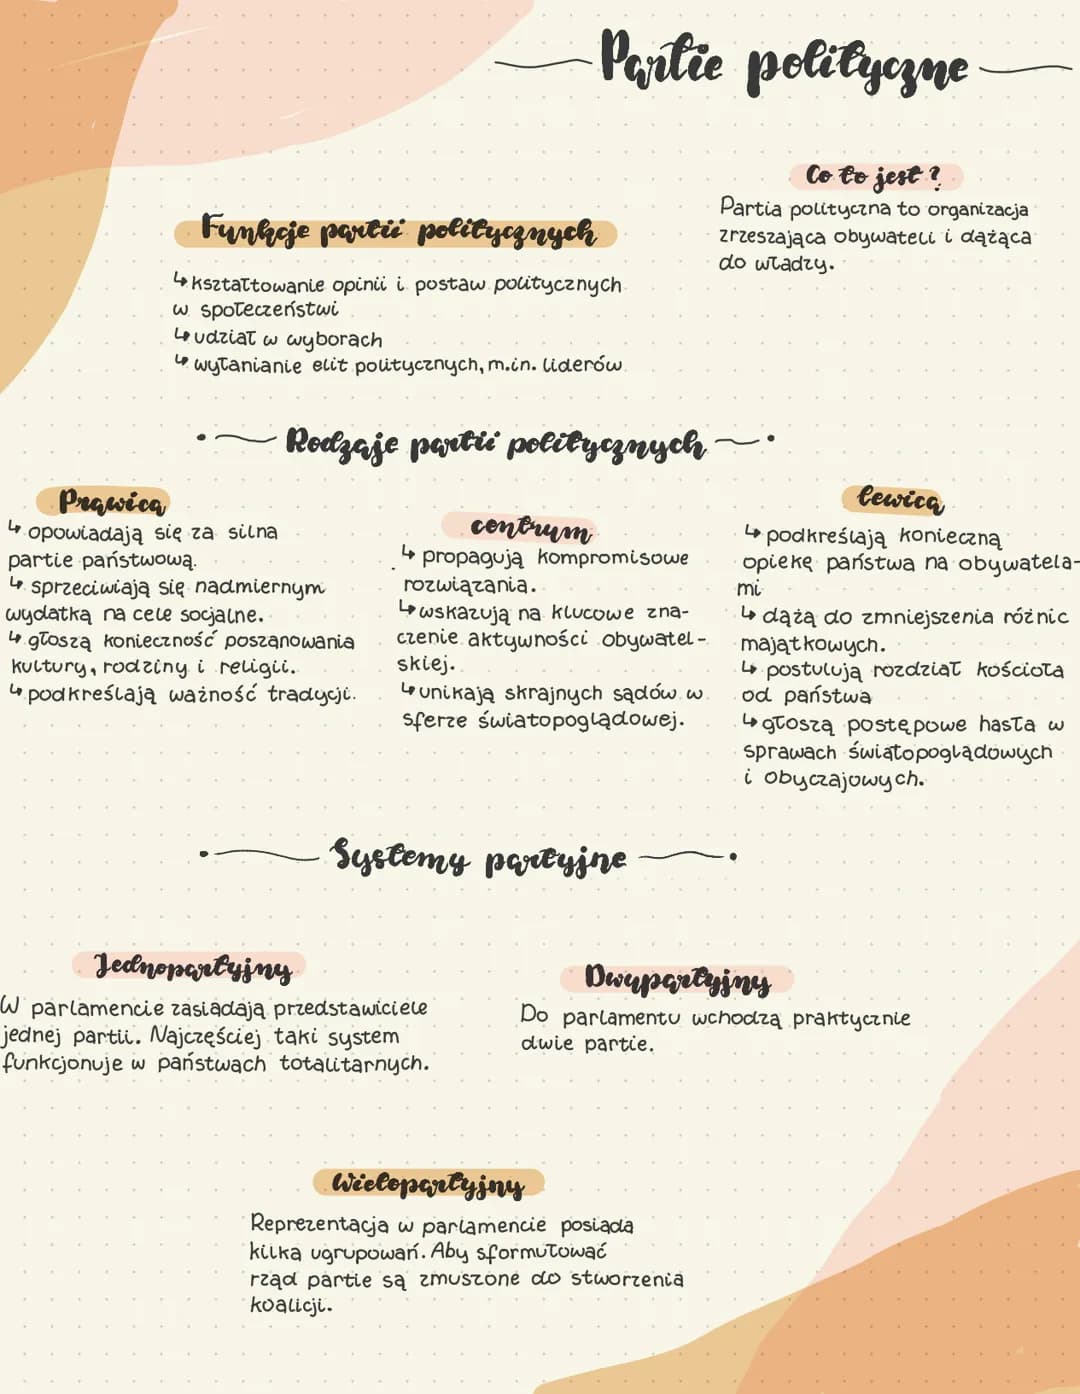 Partie polityczne
Co to jest?
Partia polityczna to organizacja
zrzeszająca obywateli i dążąca
do władzy.
Funkcje partii politycznych
↳ kształtowanie opinii i postaw politycznych
w społeczeństwi
↳ udział w wyborach
↳ wyłanianie elit politycznych, m.in. liderów
Rodzaje partii politycznych
Prawica
↳ opowiadają się za silna
partie państwową.
↳ sprzeciwiają się nadmiernym
wydatką na cele socjalne.
↳ głoszą konieczność poszanowania
kultury, rodziny i religii.
↳ podkreślają ważność tradycji.
centrum
↳ propagują kompromisowe
rozwiązania.
↳ wskazują na klucowe zna-
czenie aktywności obywatel-
skiej.
↳ unikają skrajnych sądów w
sferze światopoglądowej.
lewica
↳ podkreślają konieczną
opiekę państwa na obywatela-
mi
↳ dążą do zmniejszenia różnic
majątkowych.
↳ postulują rozdział kościoła
od państwa
↳ głoszą postępowe hasła w
sprawach światopoglądowych
i obyczajowych.
Systemy partyjne
Jednopartyjny
W parlamencie zasiadają przedstawiciele
jednej partii. Najczęściej taki system
funkcjonuje w państwach totalitarnych.
Dwupartyjny
Do parlamentu wchodzą praktycznie
dwie partie.
Wielopartyjny
Reprezentacja w parlamencie posiada
kilka ugrupowań. Aby sformułować
rząd partie są zmuszone do stworzenia
koalicji.